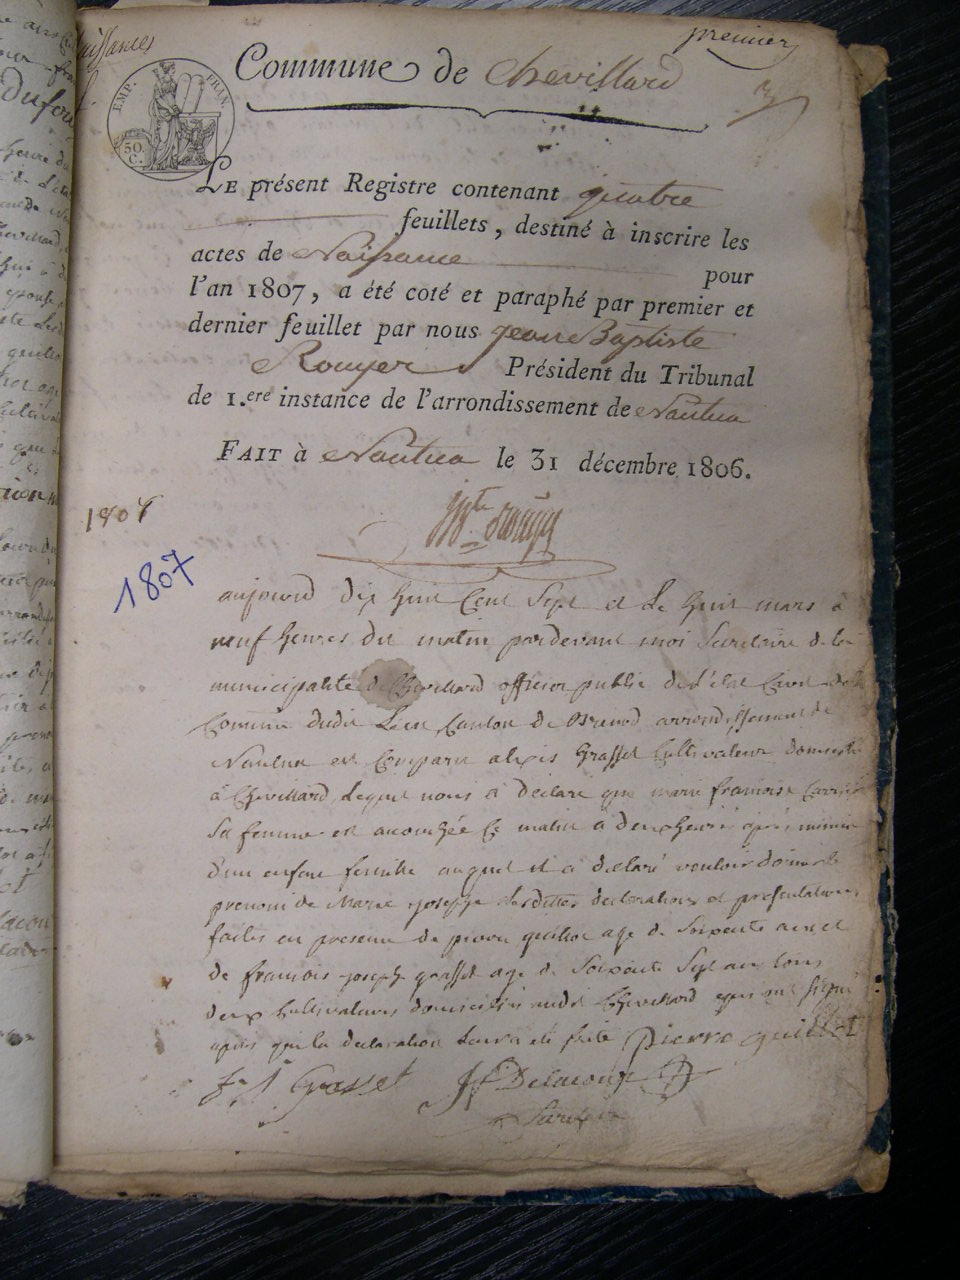 Naissances
premier
Commune de Chevillard
EMP. FRAN.
50.
C.
LE présent Registre contenant quatre
feuillets, destiné à inscrire les
actes de Naissance pour
l'an 1807, a été coté et paraphé par premier et
dernier feuillet par nous Jean Baptiste
Rouyer Président du Tribunal
de 1.ere instance de l'arrondissement de Nantua
FAIT à Nantua le 31 décembre 1806.
1807
1807
aujourd dix huit Cent Sept et Le huit mars à
neuf heures du matin pardevant moi Secretaire de la
municipalité de Chevillard officier public de l'état Civil de la
Commune dudit Lieu Canton de Brenod arrondissement de
Nantua est Comparu alexis Grasset Cultivateur domicilié
à Chevillard Lequel nous à declaré que marie francoise Carrier
Sa femme est accouchée Ce matin à deux heures après minuit
d'un enfant femelle auquel il a declaré vouloir donner le
prenom de Marie Josephe Lesdittes declarations et presentations
faites en presence de pierre guillot age de Soixante ans et
de francois joseph grasset age de Soixante Sept ans tous
deux Cultivateurs domiciliés audit Chevillard qui ont signé
après que la declaration Leur a été faite Pierre guillot
f. J Grasset J f Delacour